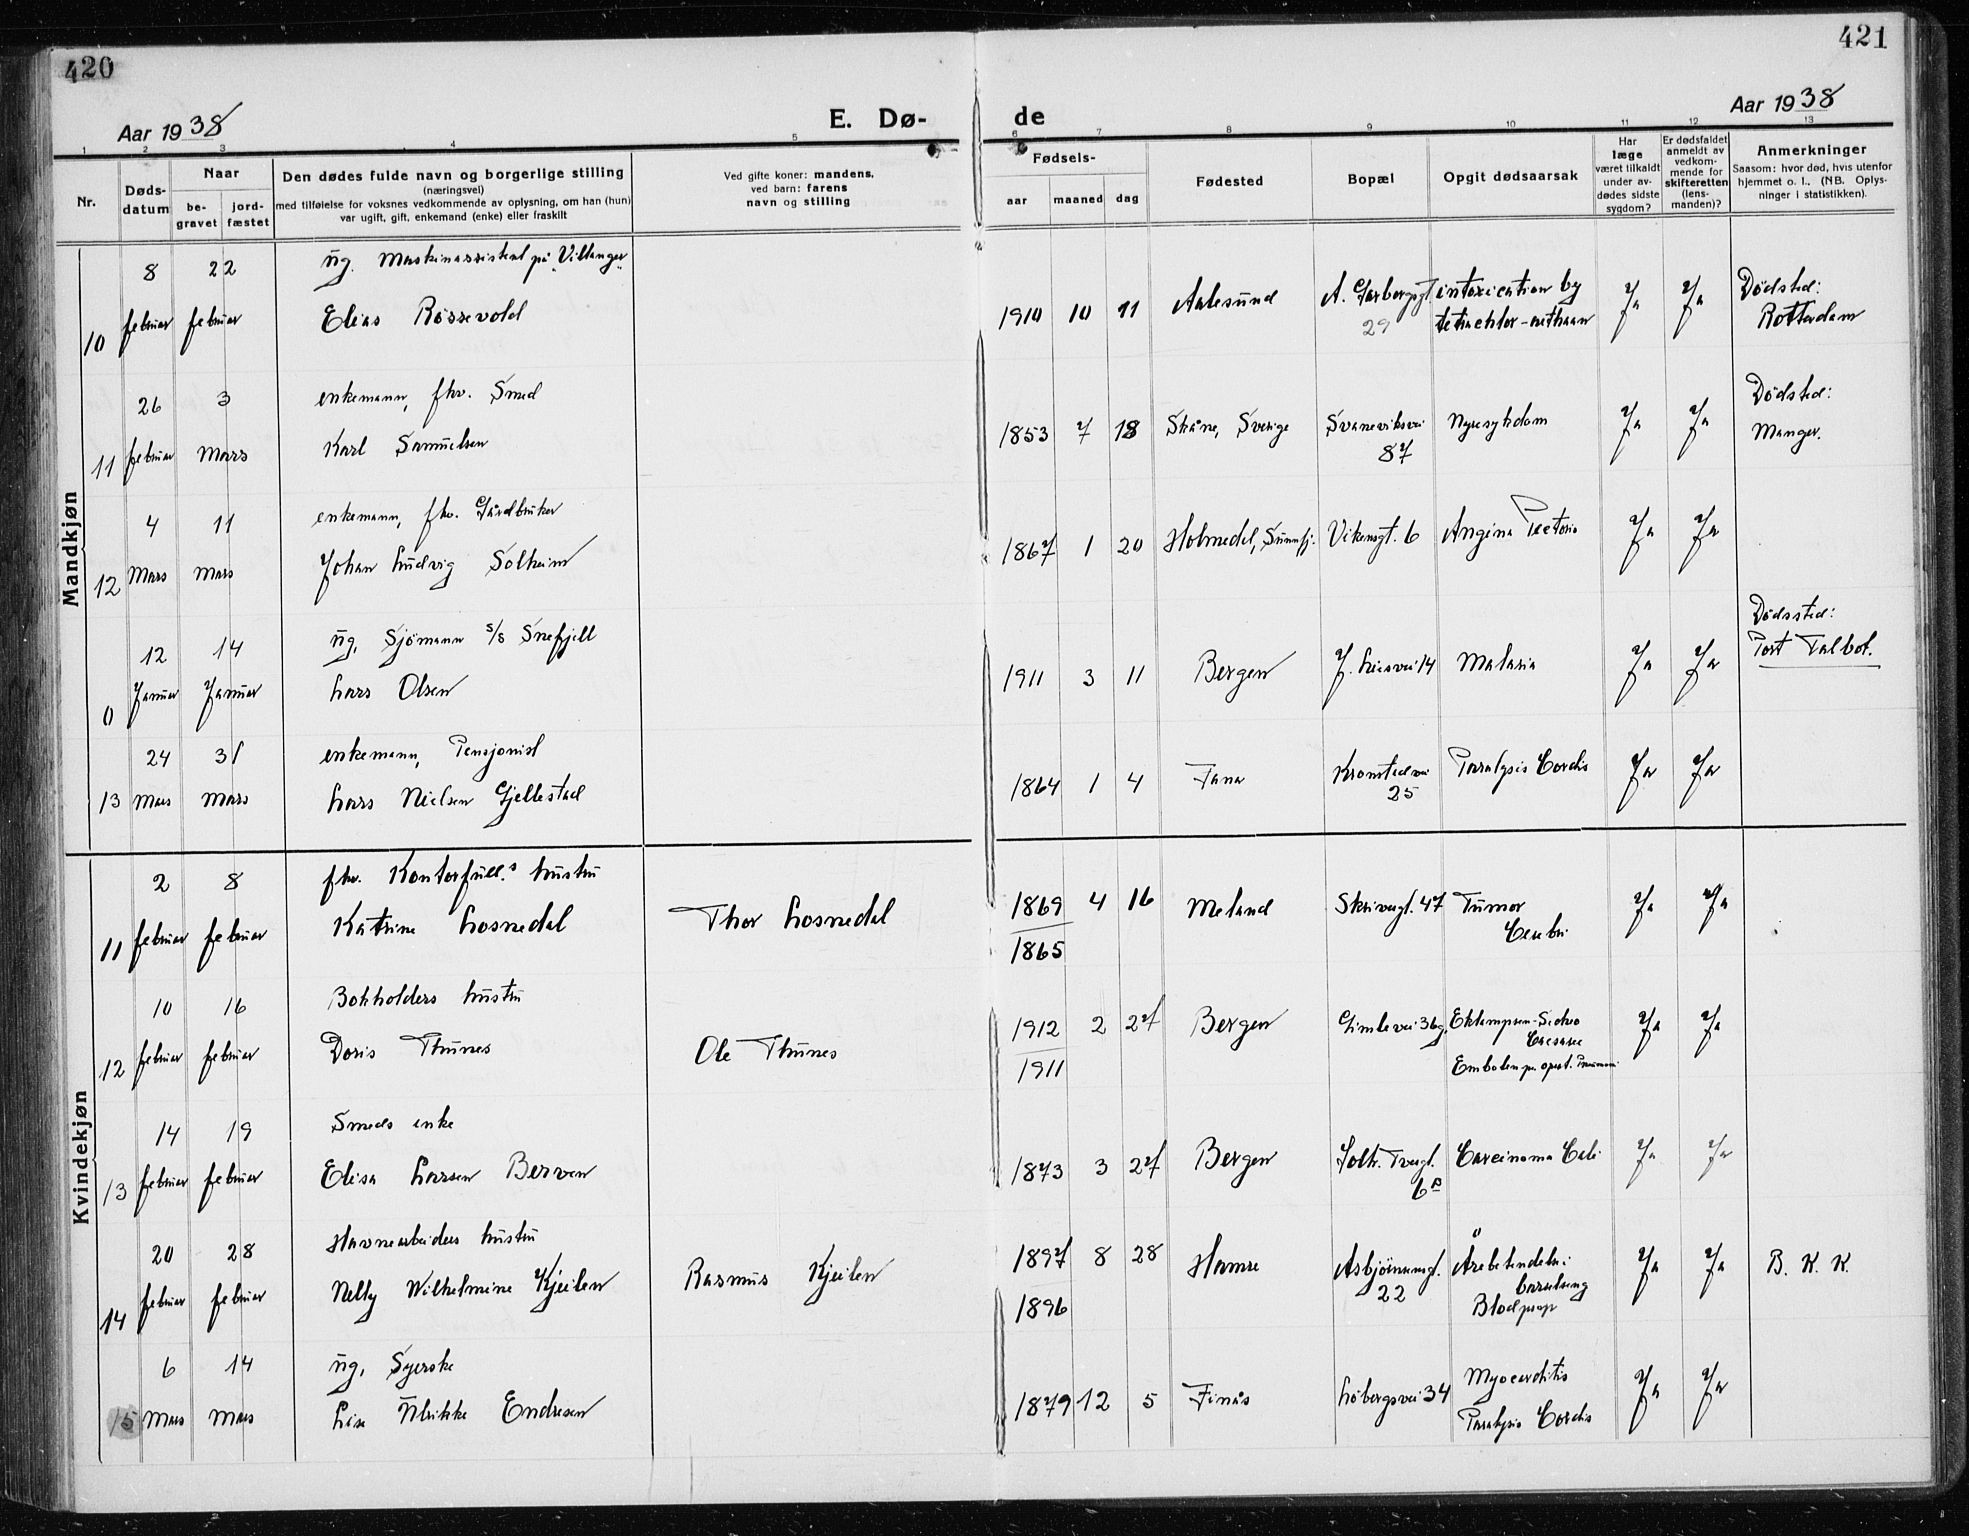 420
421
Aar 1938
E. Dø-
de
Aar 1938
1 2 3 4 5 6 7 8 9 10 11 12 13
Nr.
Døds-
datum
Naar
be-
gravet
jord-
fæstet
Den dødes fulde navn og borgerlige stilling
(næringsvei)
med tilføielse for voksnes vedkommende av oplysning, om han (hun)
var ugift, gift, enkemand (enke) eller fraskilt
Ved gifte koner: mandens,
ved barn: farens
navn og stilling
Fødsels-
aar maaned dag
Fødested
Bopæl
Opgit dødsaarsak
Har
læge
været tilkaldt
under av-
dødes sidste
sygdom?
Er dødsfaldet
anmeldt av
vedkom-
mende for
skifteretten
(lens-
manden)?
Anmerkninger
Saasom: hvor død, hvis utenfor
hjemmet o. l.. (NB. Oplys-
ninger i statistikken).
Mandkjøn
8 22 ug. Maskinassistent på "Villanger"
10 februar februar Elias Røssevold
1910 10 11 Aalesund A. Garborgsgt. 29
intoxication by
tetrachlor-methaan
Ja Ja
Dødsted:
Rotterdam
26 3 enkemann, fhv. Smed
11 februar Mars Karl Samuelsen
1853 7 18 Skåne, Sverige Svaneviksvei 87 Nyresykdom Ja Ja
Dødsted:
Manger.
4 11 enkemann, fhv. Gårdbruker
12 Mars Mars Johan Ludvig Solheim
1867 1 20 Holmedal, Sunnfj. Vikensgt. 6 Angina Pectoris Ja Ja
12 14 ug. Sjömann s/s Snefjell
0 Januar Januar Lars Olsen
1911 3 11 Bergen J. Liesvei 14 Malaria Ja Ja
Dødssted:
Port Talbot.
24 31 enkemann, Pensjonist
13 Mars Mars Lars Nielsen Gjellestad
1864 1 4 Fana Kronstadvei 25 Paralysis Cordis Ja Ja
Kvindekjøn
2 8 fhv. Kontorfull.s hustru
11 februar februar Katrine Losnedal Thor Losnedal
1869 4 16 Meland Skrivergt. 47 Tumor
1865
Cerebri
Ja Ja
10 16 Bokholders hustru
12 februar februar Doris Thunes Ole Thunes
1912 2 27 Bergen Gimlevei 36g. Eklampsen-Sectio
1911
Caesarea
Embolen pn. operat. Pneumoni
Ja Ja
14 19 Smeds enke
13 februar februar Elisa Larsen Berven
1873 3 27 Bergen Solh. Tvergt. 6 B Carcinoma Coli Ja Ja
20 28 Havnearbeiders hustru
14 februar februar Nelly Wilhelmine Kjeilen Rasmus Kjeilen
1897 8 28 Hamre Asbjørnsensgt. 22
1896
Årebetendelse i
Blodpropp
Ja Ja B. K. K.
6 14 ug. Syerske
15 Mars Mars Lisa Ulrikke Endresen
1879 12 5 Finås Løbergsvei 34 Myocarditis
Paralysis Cordis
Ja Ja